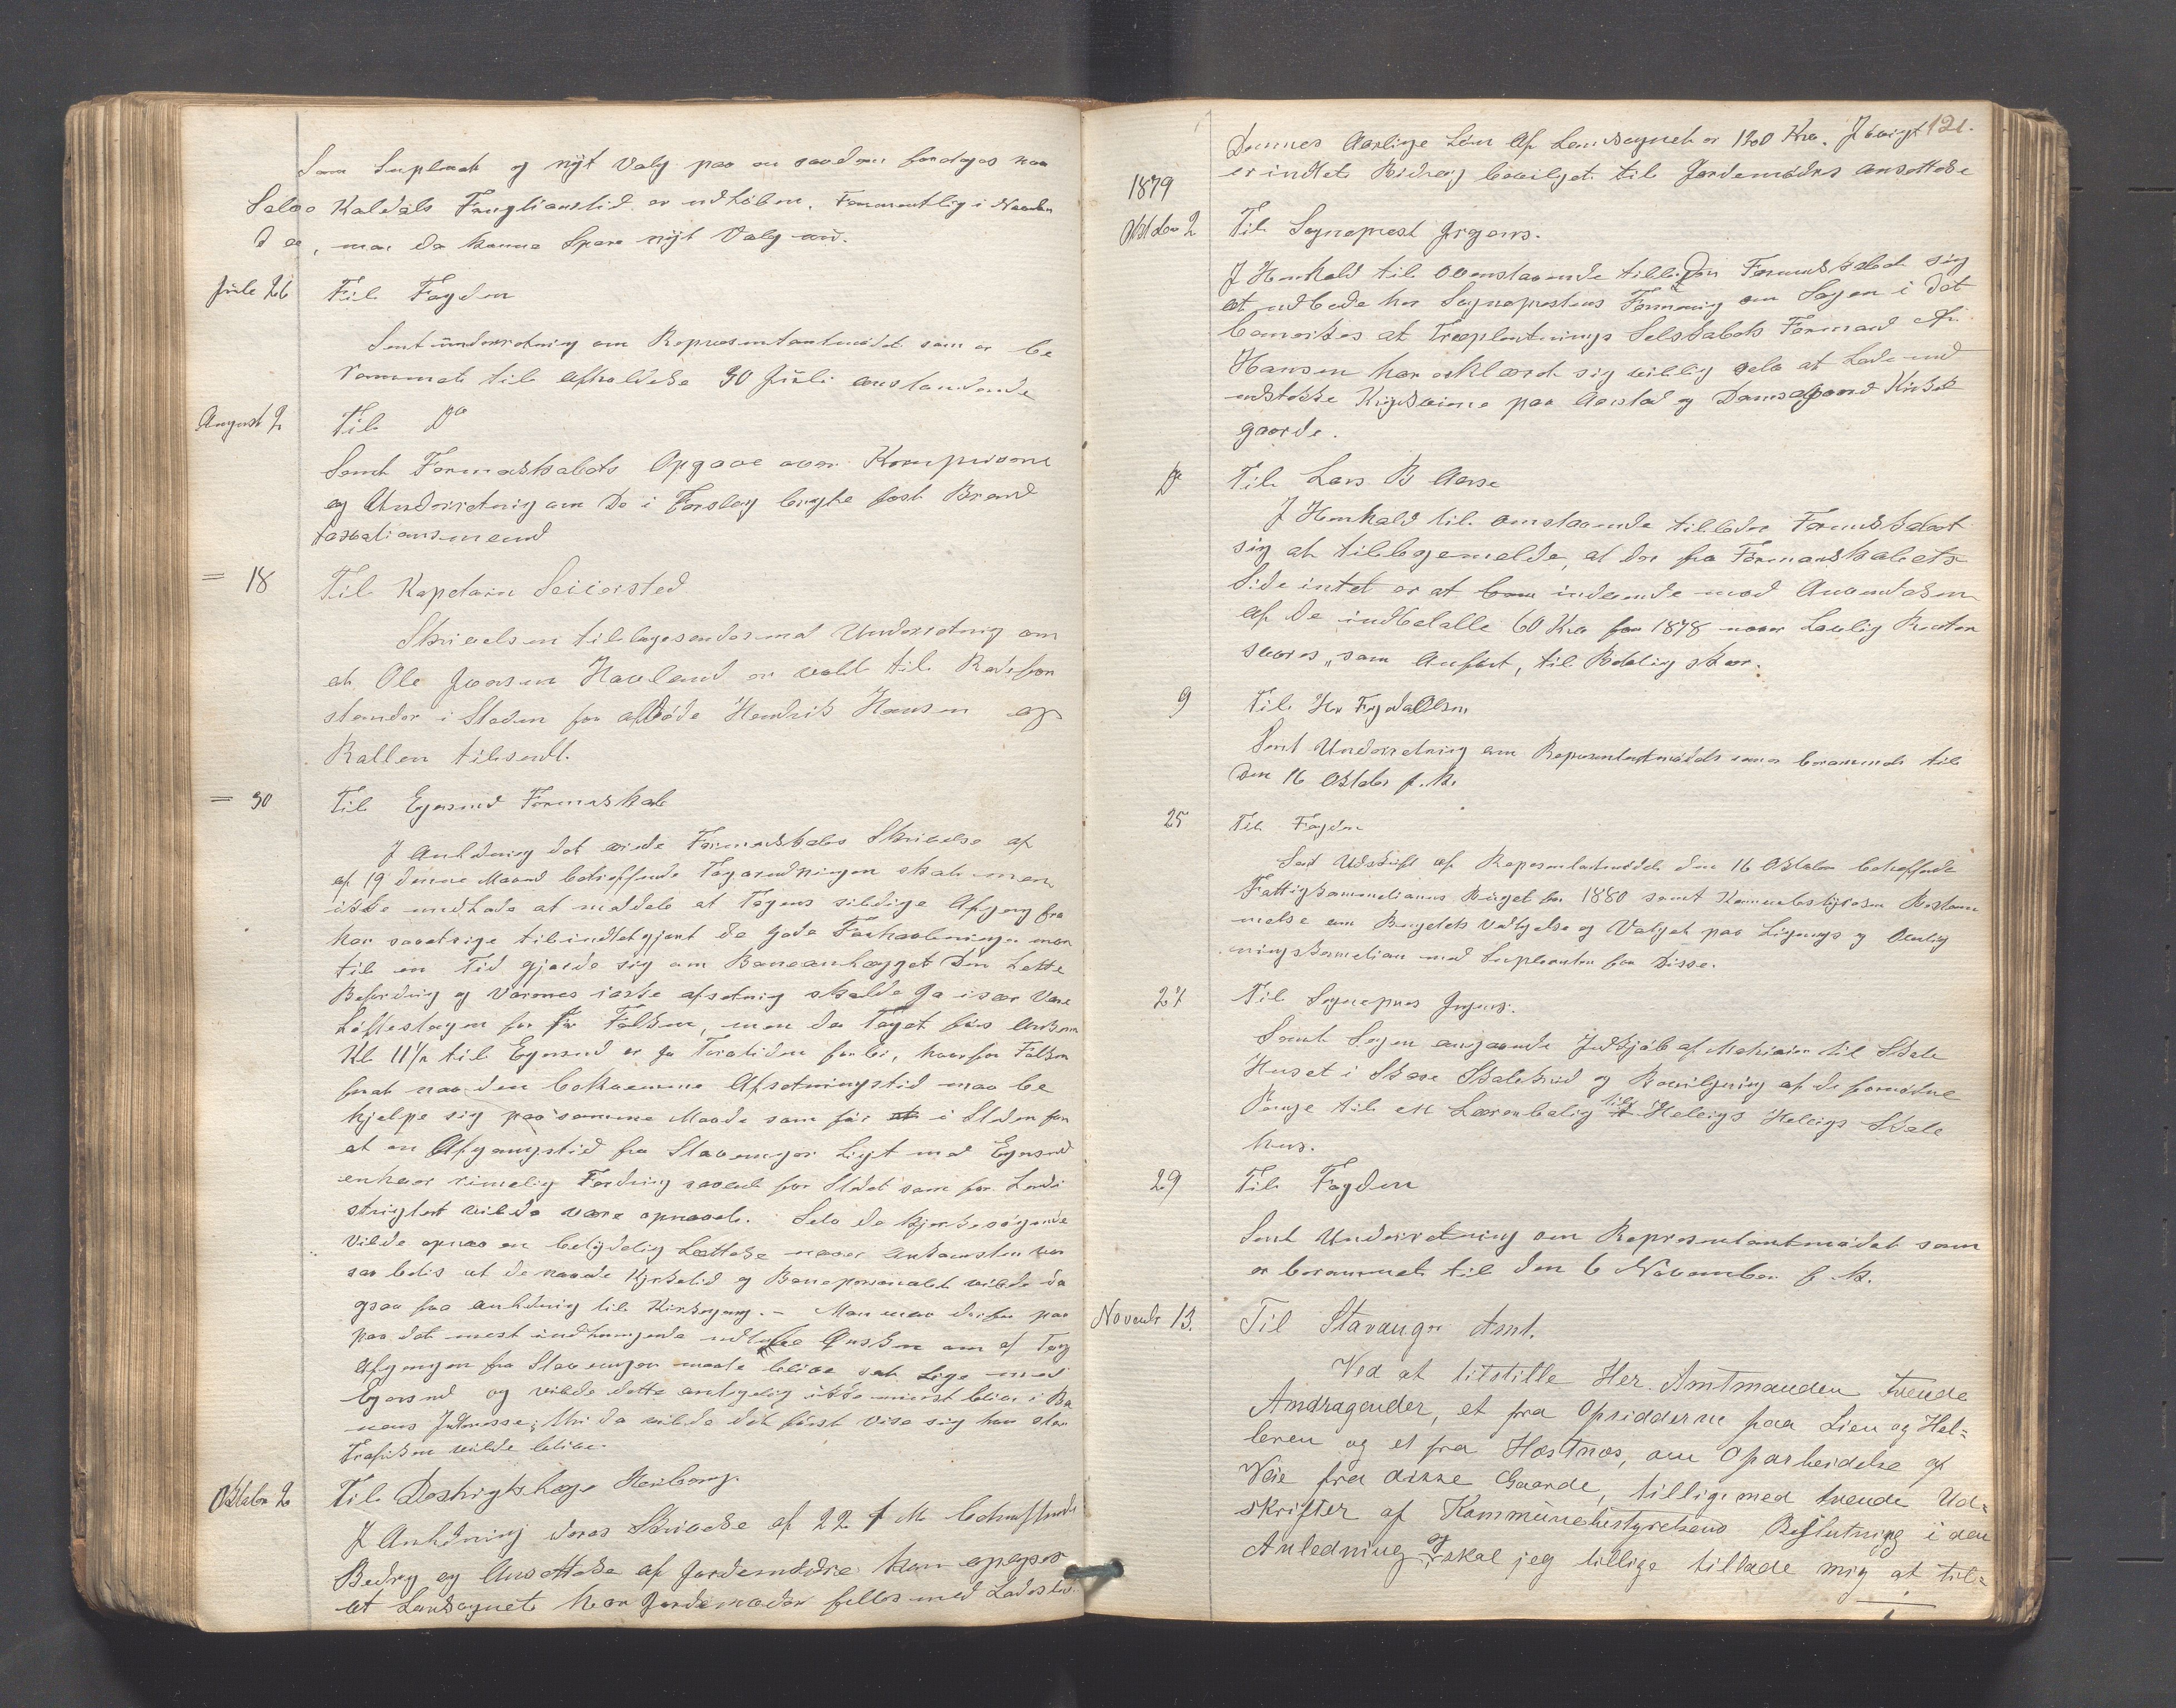 Som Supleant og nyt Valg paa en saadan foretages naar
Salve Kaldals Fungtionstid er udløben. Formentlig i Novbr
d a, man da kunne Spare nyt Valg nu.
Juli 26 Til Fogden
Sent underretning om Representantmødet som er be
rammet til afholdelse 30 Juli anstundende
August 2 Til Do
Sendt Formandskabets Opgave over Kornpriserne
og Underretning om De i Forslag bragte fast Brand
taxationsmænd
= 18 Til Kaptain Seiersted
Skrivelsen tilbagesendes med Underretning om
at Ole Jonsen Haveland er valgt til Rodefor
stander i Steden for afdøde Hendrik Hansen og
Rullen tilsendt.
= 30 Til Egersund Formandskab
I Anledning det ærede Formandskabs Skrivelse af
af 19 denne Maaned betreffende Togændringen skal man
ikke undlade at meddele at Togens sildige Afgang fra
har saa at sige tilintetgjort de gode Forhaabninger man
til en Tid gjorde sig om Baneanlægget Den Lette
Befordring og Varenes raske afsetning skulde Ja især være
Løftestagen for Fiskefolken, men da Toget først Ankom
Kl 11½ til Egersund er jo Torvtiden forbi, hvorfor Folken
for at naa den bekvemme Afsetningstid maa be
hjelpe sig paa samme Maade som før i Steden for
at en Afgangstid fra Stavanger Ligt med Egersund
enhver rimelig Fordring saavel for Stedet som for Landi
strigtet vilde være opnaaet. Selv de kjerkesøgende
Vilde opnaa en betydelig Lettelse naar Ankomsten var
saaledes at de naaede Kjrketid og Banepersonalet vilde da
ogsaa faa anledning til Kirkegang. – Man maa derfor paa
paa det mest indtrængende udtale Ønsken om at Tog
Afgangen fra Stavanger maate blive sat Lige med
Egersund og vilde dette antagelig ikke mindst blive i Ba
nens Intresse, thi da vilde det først vise sig hvor stor
Trafiken vilde blive.
Oktober 2 Til Destrigtslæge
I Anledning deres Skrivelse af 22 f M betreffende
Bedrag og Ansettelse af Jordemødre kan opgives
at Landsognet har Jordemoder felles med Ladestd.
121.
Dennes Aarlige Løn af Landsognet er 120 Kr. Iøvrigt
er indtet Bidrag bevilget til Jordemødrs ansettelse
1879
Oktober 2 Til Sogneprest Jrgens.
I Henhold til ovenstaaende tillader Formandskabet sig
at udbede hr Sognepresstens Formening om Sagen i det
bemerkes at Treplantnings Selskabets Formand
Hansen har erklæret sig villig selv at Lade und
udstikke paa Aarstad og Damsgaard Kirke
gaarde.
Do Til Lars B Aase
I Henhold til omstaaende tillader Formandskabet
sig at tilbagemelde, at der fra Formanskabets
Side intet er at indvende mod Anvendelsen
af De indbetalte 60 Kr for 1878 naar Lovlig Renter
svares, som Anført, til Bolig skov.
9 Til Hr Foged Olsen
Sent Underretning om Representantmødet som er berammet til
Den 16 Oktober f. k.
25 Til Fogden
Sent Udskrift af Representantmødet den 16 Oktober betreffende
Fattigkommissionens Buget for 1880 samt Kommunbestyrelsen Bestem
melse om Bugetets Vedtagelse og Valget paa Lignings og Overlig
ningskomision med Supleanter for Disse.
27 Til Sognepres Jrgens.
Sent Sagen angaaende Indkjøb af Materialer til Skole
Huset i Skaare Skolekred og Bevilgning af de fornødne
Penge til en Lærerbolig til Helvigs Helvigs Skole
hus.
29 Til Fogden
Sent Underretning om Representantmødet som
er berammet til den 6 November f k.
Novembr 13. Til Stavanger Amt.
Ved at tilstille Her. Amtmanden tvende
Andragender, et fra Opsidderne paa Lien og Hel=
leren og et fra Hæstnæs, om Oparbeidelse af
Veie fra disse Gaarde, tilligemed tvende Ud=
skrifter af Kommünebestyrelsens Beslutning i den
Anledning og skal jeg tillige tillade mig at til=